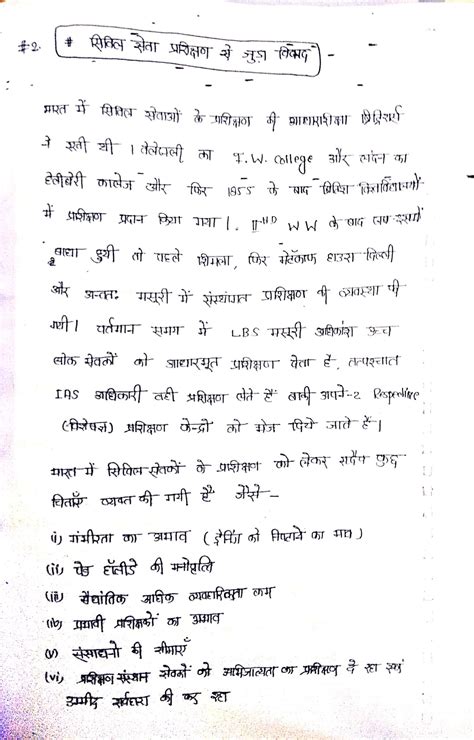 #2. # सिविल सेवा प्रशिक्षण से जुडा विवाद
भारत में सिविल सेवाओं के प्रशिक्षण की आधारशिला ब्रिटिशर्स
ने रखी थी । वेलेजली का F.W. College और लंदन का
हेलीबेरी कालेज और फिर 1855 के बाद ब्रिटिश विश्वविद्यालयों
में प्रशिक्षण प्रदान किया गया । IInd WW के बाद जब इसमें
बाधा हुयी तो पहले शिमला, फिर मेटकॉफ हाउस दिल्ली
और अन्ततः मसूरी में संस्थागत प्रशिक्षण की व्यवस्था की
गयी । वर्तमान समय में LBS मसूरी अधिकांश उच्च
लोक सेवकों को आधारभूत प्रशिक्षण देता है, तत्पश्चात
IAS अधिकारी वही प्रशिक्षण लेते हैं बाकी अपने-2 Respective
(विशेषज्ञ) प्रशिक्षण केन्द्रों को भेज दिये जाते हैं ।
भारत में सिविल सेवकों के प्रशिक्षण को लेकर सदैव कुछ
चिंताएँ व्यक्त की गयी हैं जैसे -
(i) गंभीरता का अभाव ( ट्रेनिंग को निपटाने का भाव )
(ii) पेड हॉलीडे की मनोवृत्ति
(iii) सैद्यांतिक अधिक व्यवहारिकता कम
(iv) प्रभावी प्रशिक्षकों का अभाव
(v) संसाधनो की सीमाएँ
(vi) प्रशिक्षण संस्थान सेवकों को अभिजात्यता का प्रशिक्षण दे रहा एवं
उम्मीद सर्वहारा की कर रहा